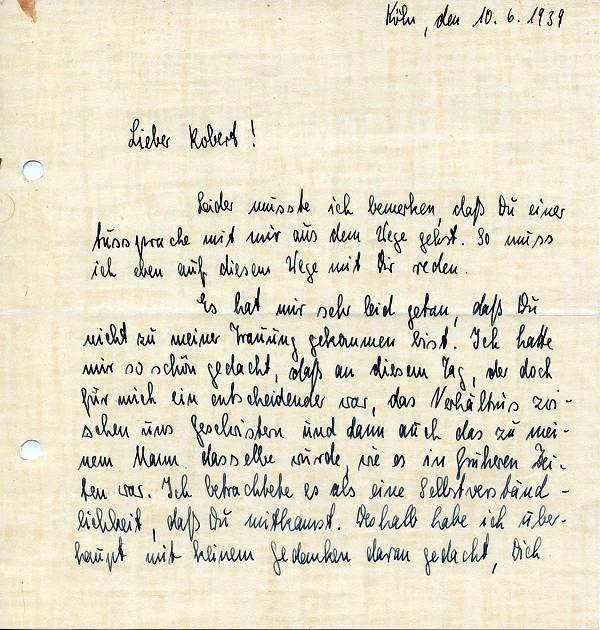 Köln, den 10. 6. 1939
Lieber Robert!
Leider musste ich bemerken, daß Du einer
Aussprache mit mir aus dem Wege gehst. So muss
ich eben auf diesem Wege mit Dir reden.
Es hat mir sehr leid getan, daß Du
nicht zu meiner Trauung gekommen bist. Ich hatte
mir so schön gedacht, daß an diesem Tag, der doch
für mich ein entscheidender war, das Verhältnis zwi-
schen uns Geschwistern und dann auch das zu mei-
nem Mann dasselbe würde, wie es in früheren Zei-
ten war. Ich betrachtete es als eine Selbstverständ-
lichkeit, daß Du mitkamst. Deshalb habe ich über-
haupt mit keinem Gedanken daran gedacht, Dich